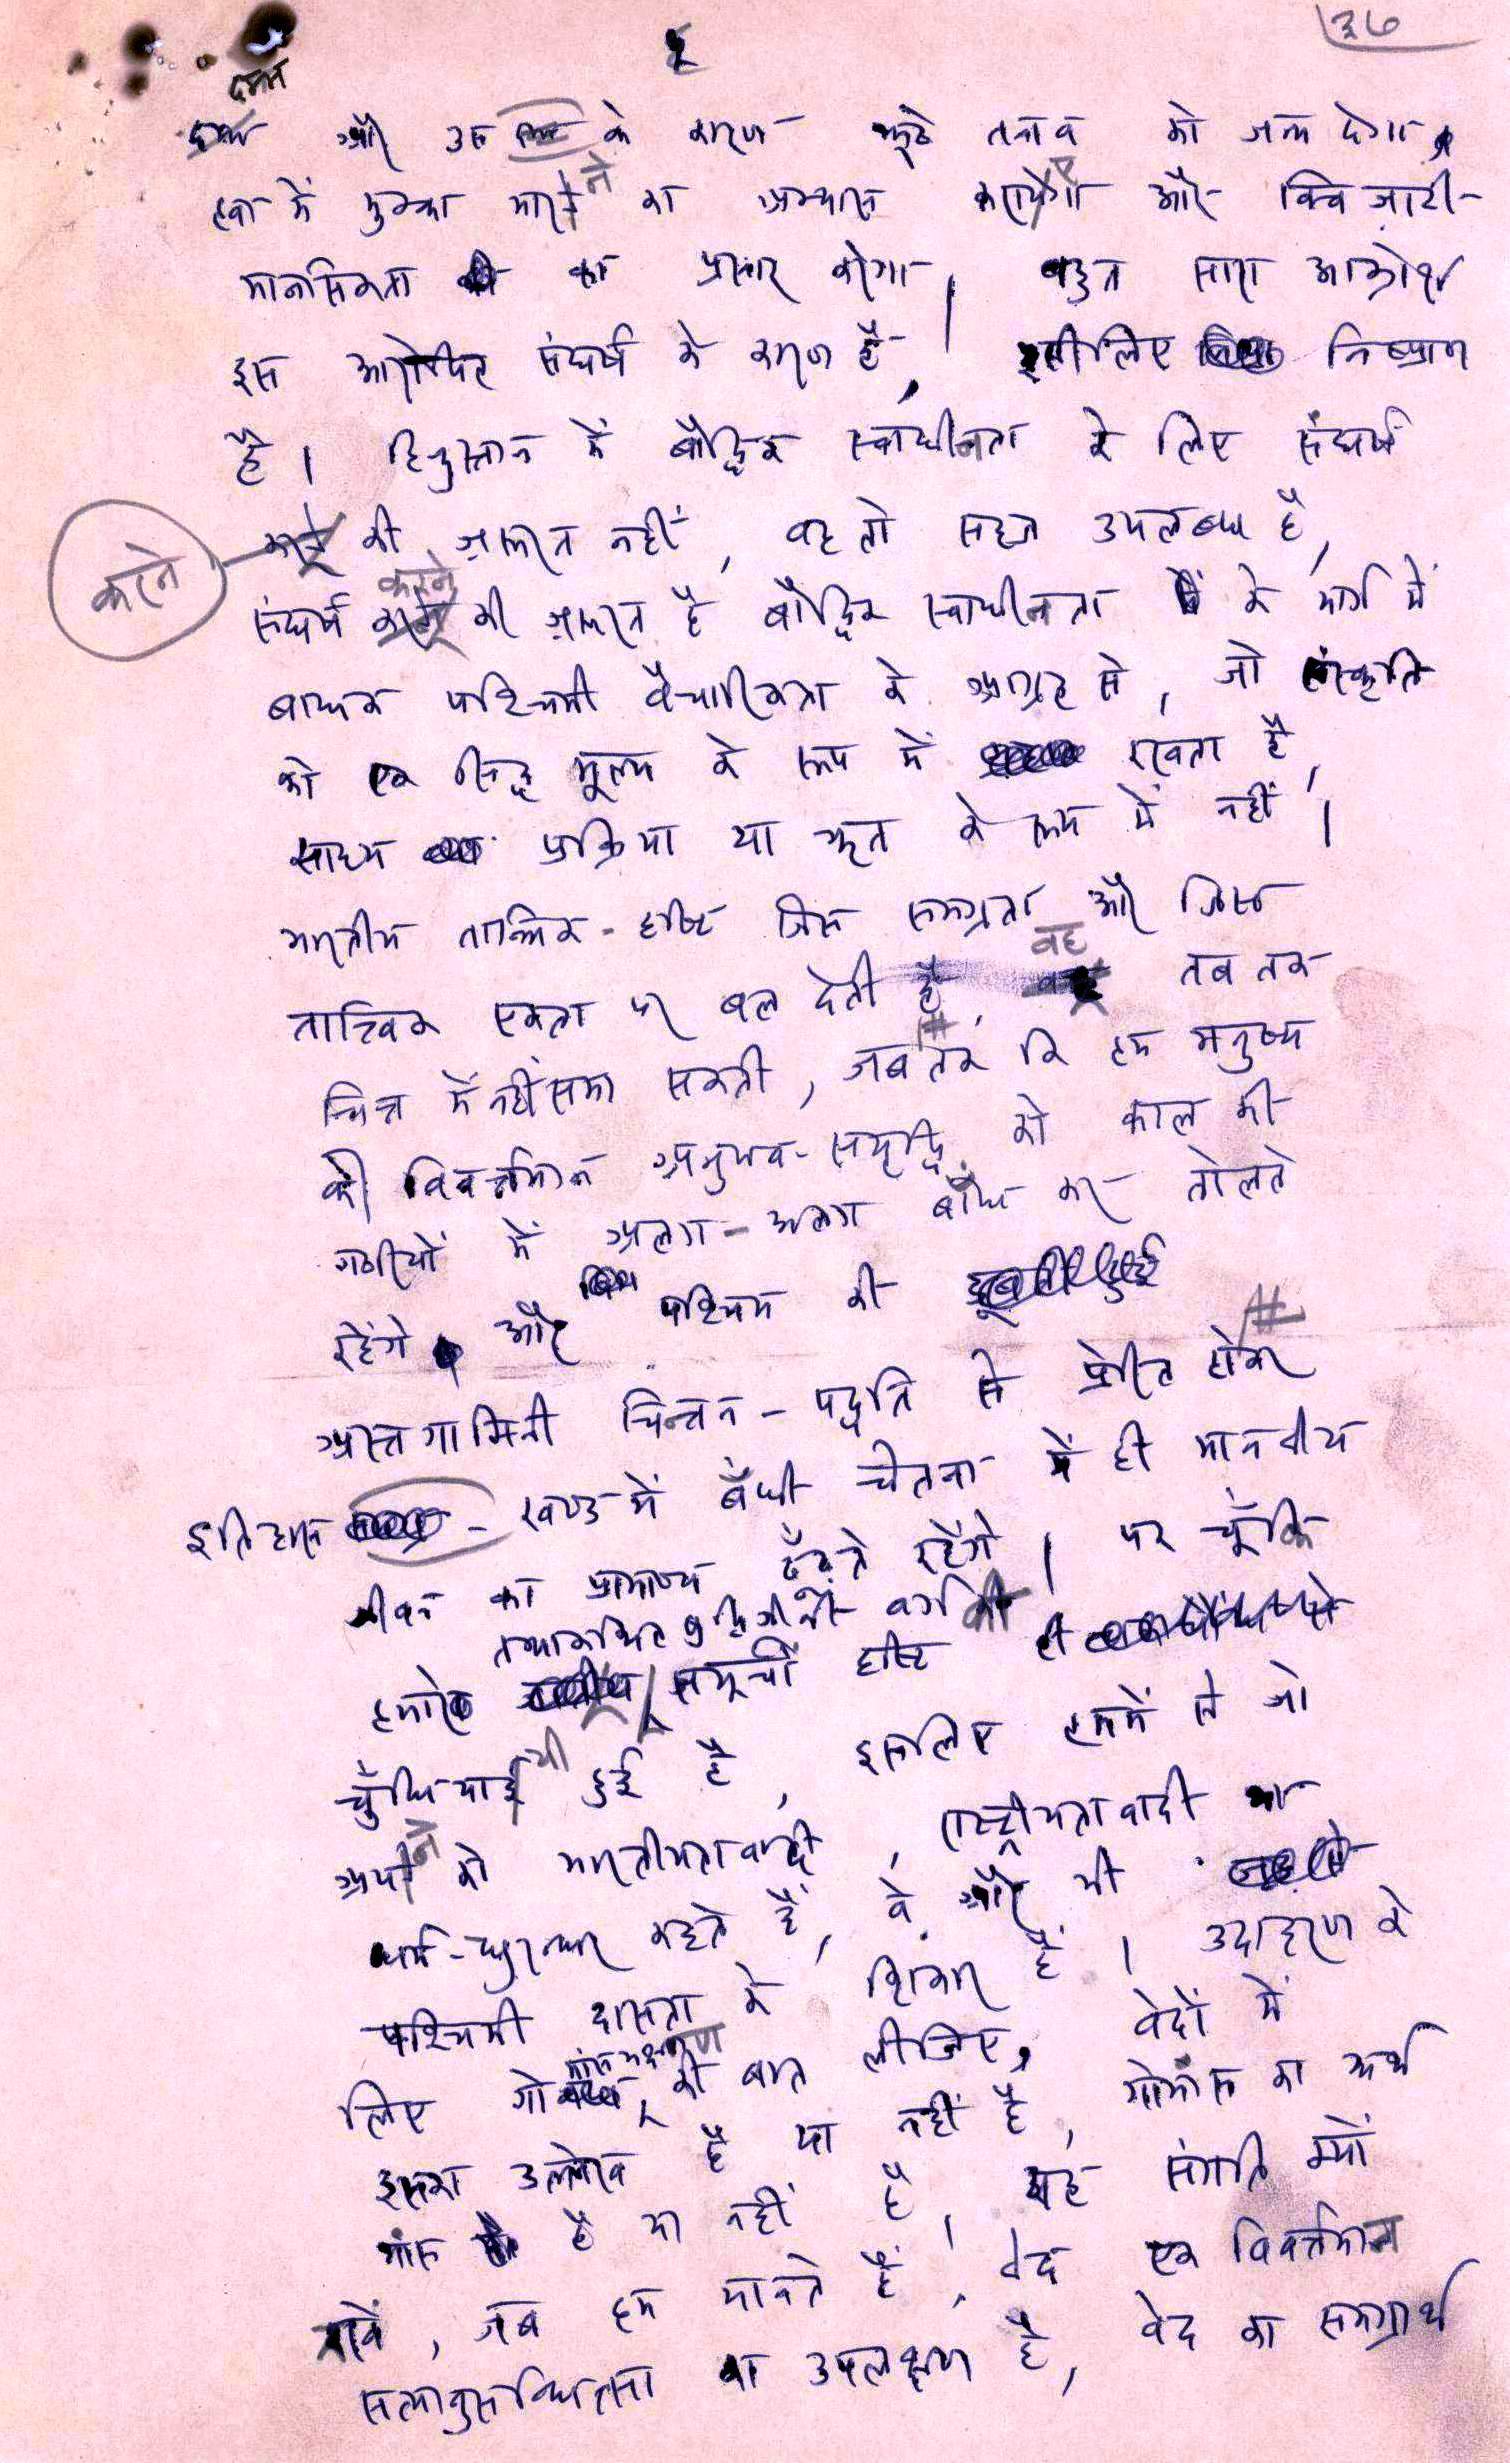 ३७
६
दमन
और उस के कारण झूठे तनाव को जन्म देगा,
हवा में मुक्का मारने का अभ्यास कराएगा और क्विज़ोटी-
मानसिकता का प्रसार करेगा। बहुत सारा आक्रोश
इस आरोपित संघर्ष के कारण है, इसीलिए निष्प्राण
है। हिन्दुस्तान में बौद्धिक स्वाधीनता के लिए संघर्ष
करने की ज़रूरत नहीं, वह तो सहज उपलब्ध है,
संघर्ष करने की ज़रूरत है बौद्धिक स्वाधीनता के मार्ग में
बाधक पश्चिमी वैचारिकता के आग्रह से, जो संस्कृति
को एक सिद्ध मूल्य के रूप में रखता है,
साध्य प्रक्रिया या ऋत के रूप में नहीं।
भारतीय तात्त्विक-दृष्टि जिस समग्रता और जिस
तात्त्विक एकता पर बल देती है, वह तब तक
चित्त में नहीं समा सकती, जब तक कि हम मनुष्य
की विवर्त्तमान अनुभव-समृद्धि को काल की
गठरियों में अलग-अलग बाँध कर तोलते
रहेंगे और पश्चिम की
अस्तगामिनी चिन्तन-पद्धति से प्रेरित होकर
इतिहास-खण्ड में बँधी चेतना में ही मानवीय
जीवन का प्रामाण्य ढूँढ़ते रहेंगे। पर चूँकि
हमारे तथाकथित बुद्धिजीवी वर्ग की समूची दृष्टि ही
चुँधियायी हुई है, इसलिए हममें से जो
अपने को भारतीयतावादी, राष्ट्रीयतावादी या
धर्म-धुरन्धर कहते हैं, वे और भी
पश्चिमी दासता के शिकार हैं। उदाहरण के
लिए गोमांसभक्षण की बात लीजिए, वेदों में
इसका उल्लेख है या नहीं है, गोमांस का अर्थ
मांस है या नहीं है, यह संगति क्यों
खोजें, जब हम मानते हैं, वेद एक विवर्त्तमान
सत्यानुसन्धित्सा का उपलक्षण है, वेद का समग्रार्थ